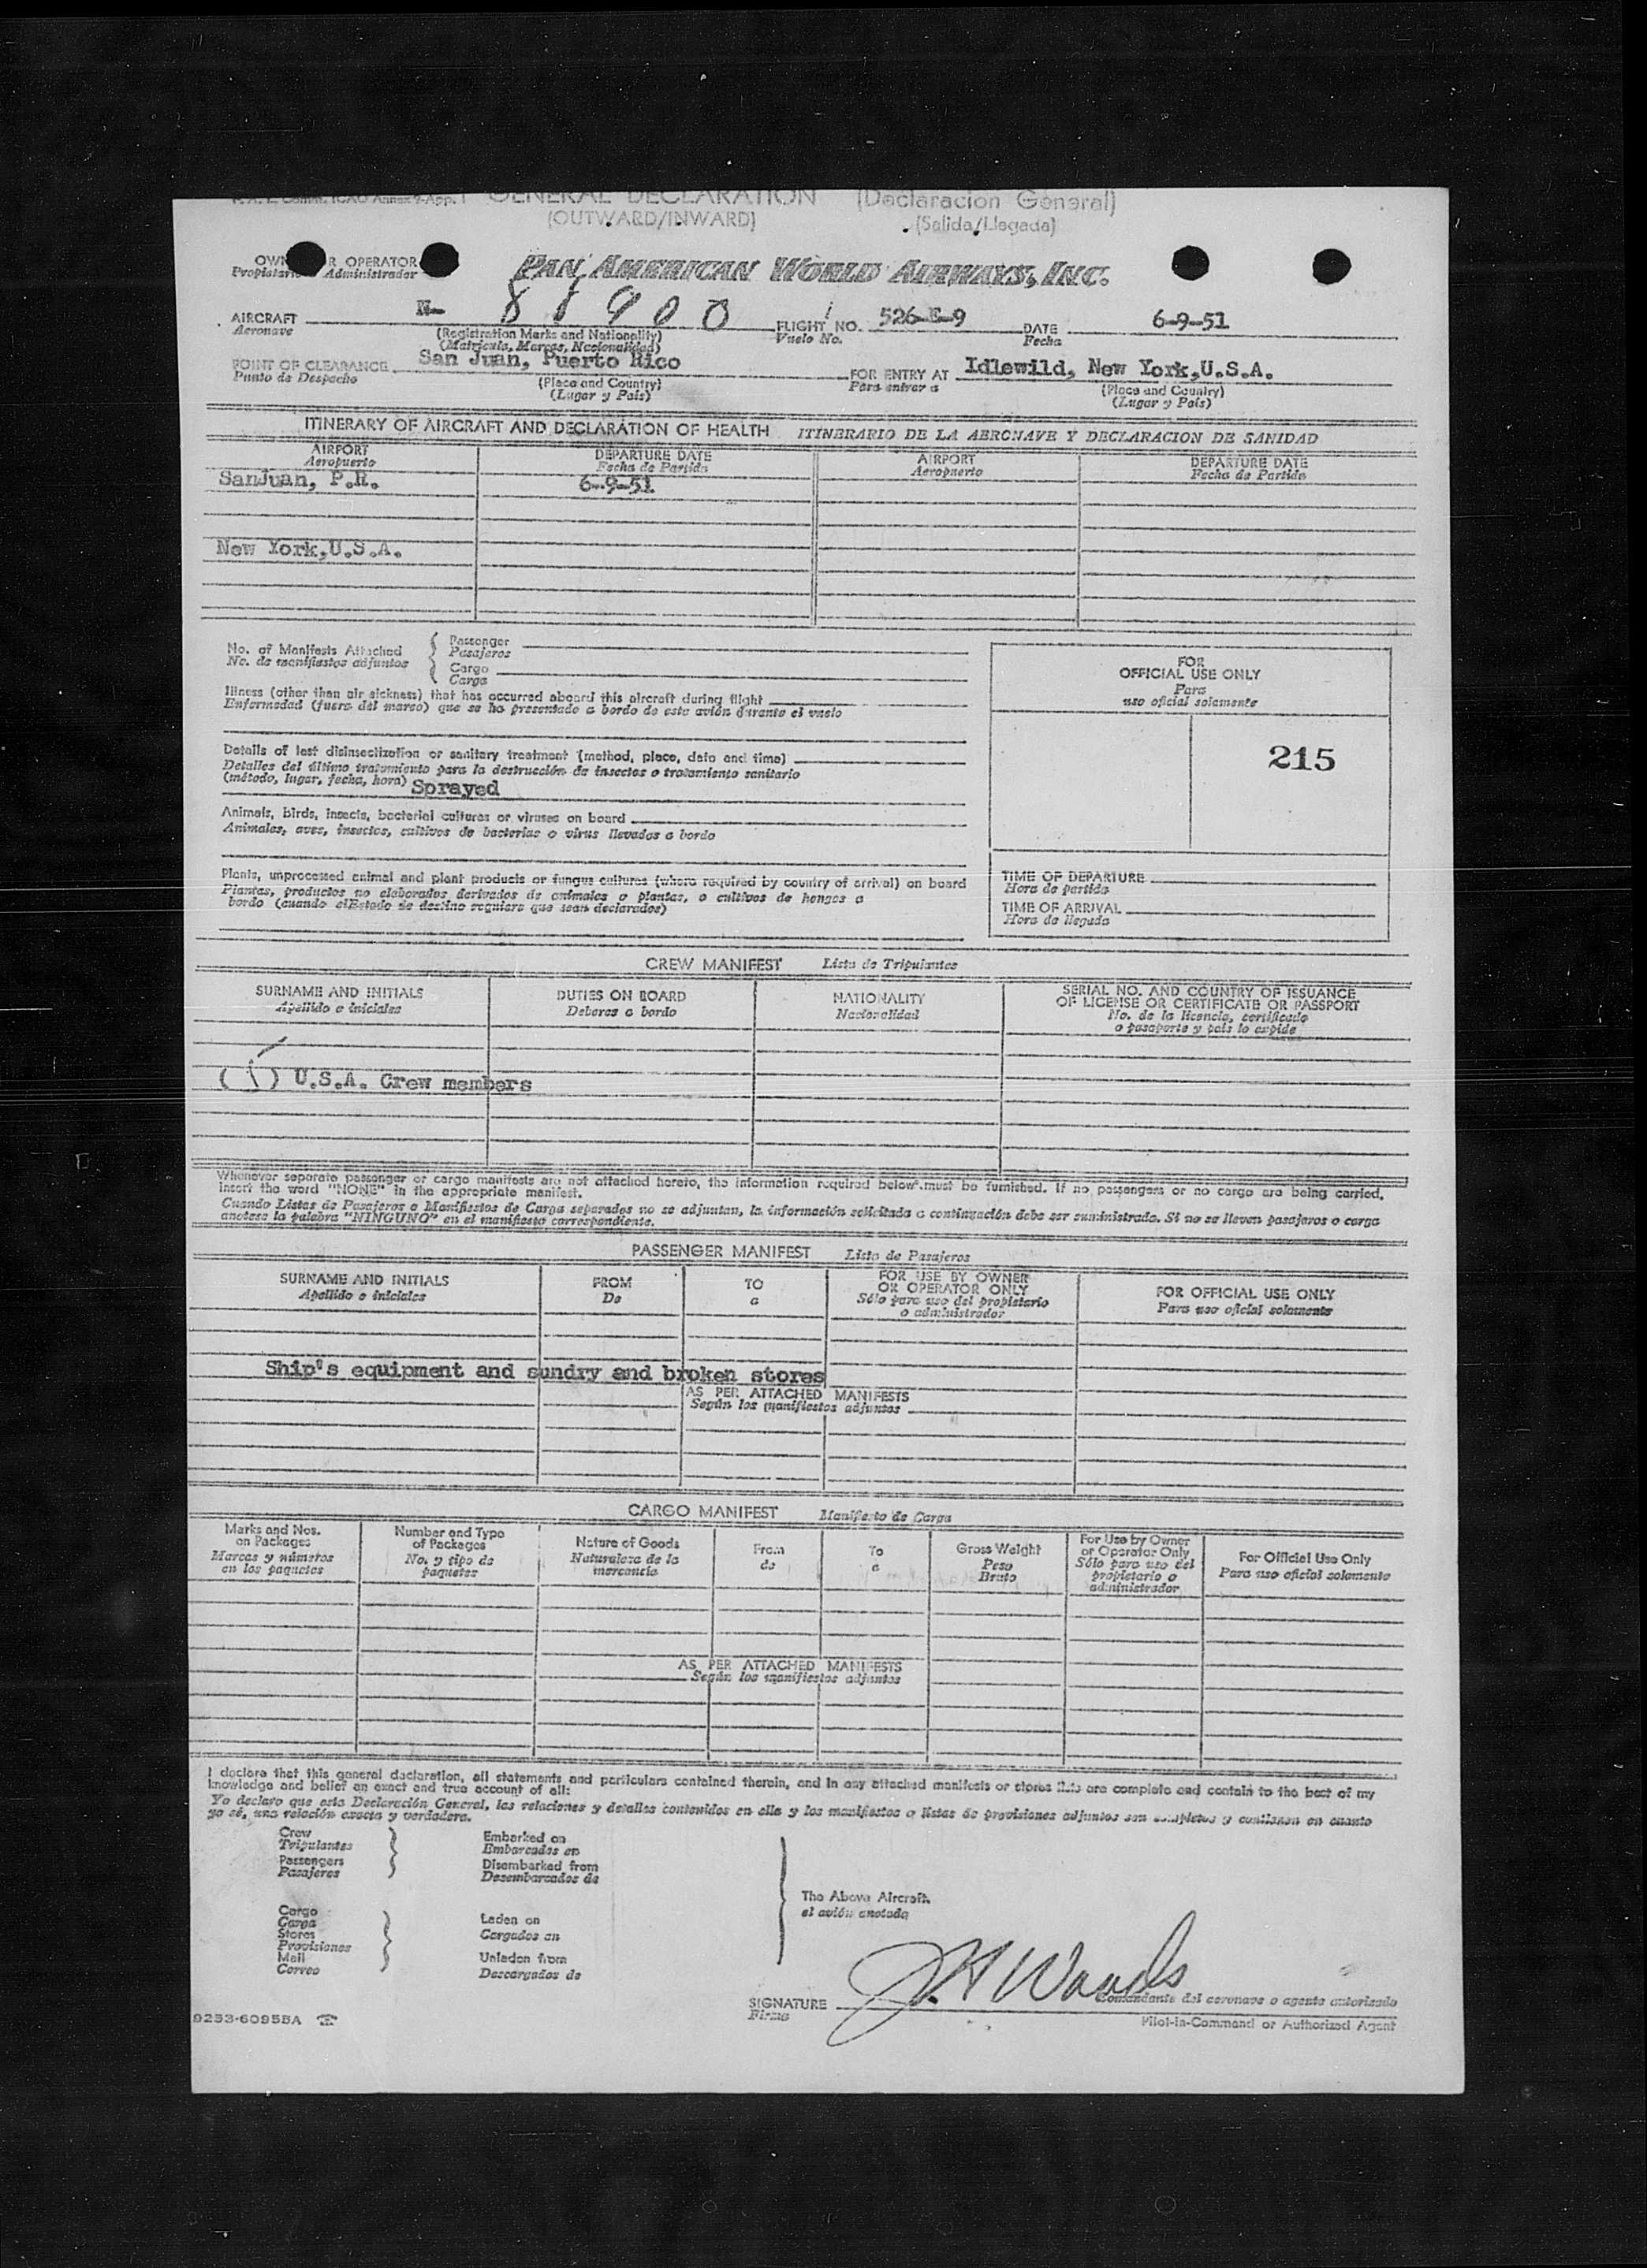 GENERAL DECLARATION (Declaracion General)
(OUTWARD/INWARD) (Salida/Llegada)
OPERATOR PAN AMERICAN WORLD AIRWAYS, INC.
Administrador
AIRCRAFT N- 88900 FLIGHT NO. 526-E-9 DATE 6-9-51
Aeronave (Registration Marks and Nationality) Vuelo No. Fecha
(Matricula, Marcas, Nacionalidad)
POINT OF CLEARANCE San Juan, Puerto Rico FOR ENTRY AT Idlewild, New York,U.S.A.
Punto de Despacho (Place and Country) Para entrar a (Place and Country)
(Lugar y Pais) (Lugar y Pais)
ITINERARY OF AIRCRAFT AND DECLARATION OF HEALTH ITINERARIO DE LA AERONAVE Y DECLARACION DE SANIDAD
AIRPORT DEPARTURE DATE AIRPORT DEPARTURE DATE
Aeropuerto Fecha de Partida Aeropuerto Fecha de Partida
SanJuan, P.R. 6-9-51
New York,U.S.A.
No. of Manifests Attached Passenger
No. de manifiestos adjuntos Pasajeros
Cargo
Carga
Illness (other than air sickness) that has occurred aboard this aircraft during flight
Enfermedad (fuera del mareo) que se ha presentado a bordo de este avión durante el vuelo
Details of last disinsectization or sanitary treatment (method, place, date and time)
Detalles del último tratamiento para la destrucción de insectos o tratamiento sanitario
(método, lugar, fecha, hora) Sprayed
Animals, birds, insects, bacterial cultures or viruses on board
Animales, aves, insectos, cultivos de bacterias o virus llevados a bordo
Plants, unprocessed animal and plant products or fungus cultures (where required by country of arrival) on board
Plantas, productos no elaborados derivados de animales o plantas, o cultivos de hongos a
bordo (cuando el Estado de destino requiera que sean declarados)
FOR
OFFICIAL USE ONLY
Para
uso oficial solamente
215
TIME OF DEPARTURE
Hora de partida
TIME OF ARRIVAL
Hora de llegada
CREW MANIFEST Lista de Tripulantes
SURNAME AND INITIALS DUTIES ON BOARD NATIONALITY SERIAL NO. AND COUNTRY OF ISSUANCE
Apellido e iniciales Deberes a bordo Nacionalidad OF LICENSE OR CERTIFICATE OR PASSPORT
No. de la licencia, certificado
o pasaporte y pais lo expide
( ) U.S.A. Crew members
Whenever separate passenger or cargo manifests are not attached hereto, the information required below must be furnished. If no passengers or no cargo are being carried,
insert the word "NONE" in the appropriate manifest.
Cuando Listas de Pasajeros o Manifiestos de Carga separados no se adjuntan, la información solicitada a continuación debe ser suministrada. Si no se lleven pasajeros o carga
anotese la palabra "NINGUNO" en el manifiesto correspondiente.
PASSENGER MANIFEST Lista de Pasajeros
SURNAME AND INITIALS FROM TO FOR USE BY OWNER FOR OFFICIAL USE ONLY
Apellido e iniciales De a OR OPERATOR ONLY Para uso oficial solamente
Sólo para uso del propietario
o administrador
Ship's equipment and sundry and broken stores
AS PER ATTACHED MANIFESTS
Según los manifiestos adjuntos
CARGO MANIFEST Manifiesto de Carga
Marks and Nos. Number and Type Nature of Goods From To Gross Weight For Use by Owner For Official Use Only
on Packages of Packages Naturaleza de la de a Peso or Operator Only Para uso oficial solamente
Marcas y números No. y tipo de mercancia Bruto Sólo para uso del
en los paquetes paquetes propietario o
administrador
AS PER ATTACHED MANIFESTS
Según los manifiestos adjuntos
I declare that this general declaration, all statements and particulars contained therein, and in any attached manifests or stores lists are complete and contain to the best of my
knowledge and belief an exact and true account of all:
Yo declaro que esta Declaración General, las relaciones y detalles contenidos en ella y los manifiestos o listas de provisiones adjuntos son completos y contienen en cuanto
yo sé, una relación exacta y verdadera.
Crew Embarked on
Tripulantes Embarcados en
Passengers Disembarked from
Pasajeros Desembarcados de
The Above Aircraft.
el avión anotado
Cargo
Carga Laden on
Stores Cargados en
Provisiones
Mail Unladen from
Correo Descargados de
SIGNATURE J.H Woods Comandante del aeronave o agente autorizado
Firma Pilot-in-Command or Authorized Agent
9253-6095BA